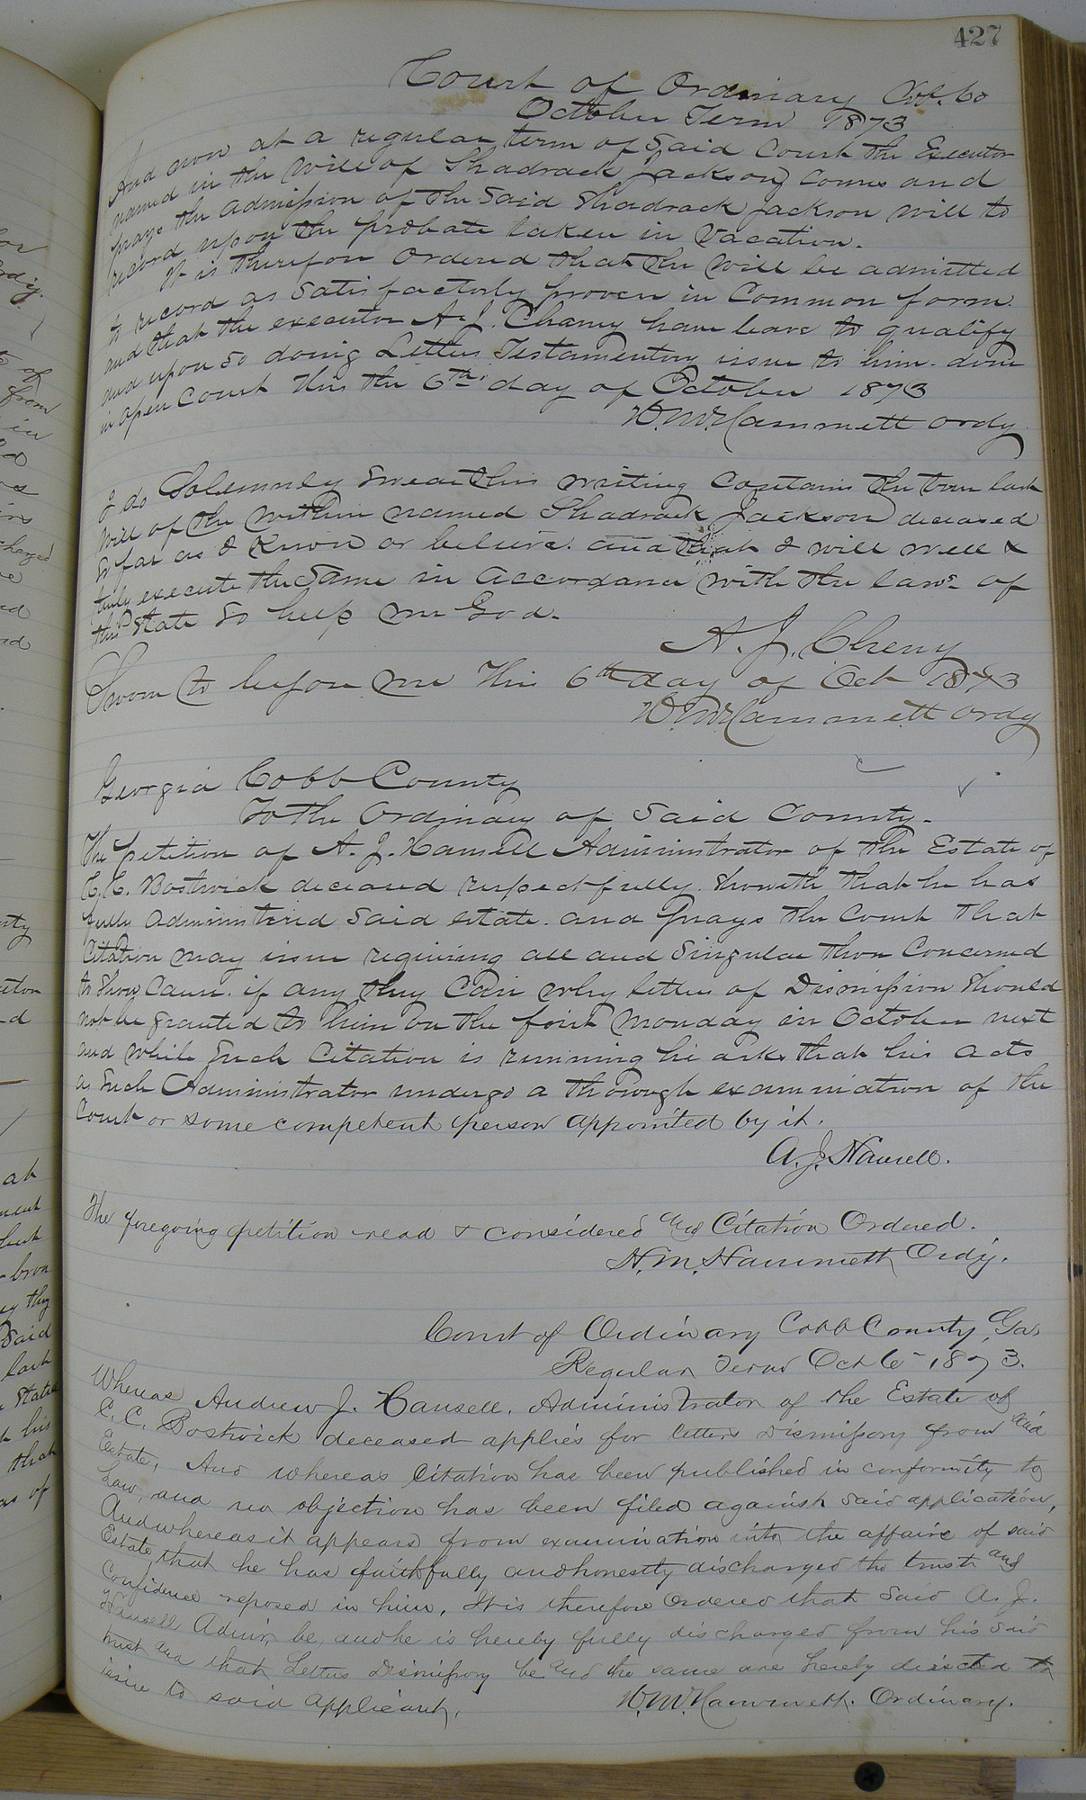 427
Court of Ordinary Cob. Co
October Term 1873
And now at a regular term of Said Court the Executor
named in the Will of Shadrack Jackson comes and
prays the admission of the Said Shadrack Jackson Will to
record upon the probate taken in Vacation.
It is therefore Ordered that the Will be admitted
to record as Satisfactorly proven in Common form
and that the executor A. J. Chaney have leave to qualify
and upon so doing Letters Testamentory issue to him. done
in open Court this the 6th day of October 1873
W. M. Hammett Ordy
I do Solemnly Swear this writing Contains the true last
Will of the within named Shadrack Jackson deceased
So far as I Know or believe. and that I will well &
truly execute the Same in Accordance with the laws of
this State So help me God.
A. J. Cheny
Sworn to before me this 6th day of Oct 1873
W. M. Hammett Ordy
Georgia Cobb County
To the Ordinary of Said County.
The petition of A. J. Hansell Administrator of the Estate of
C. C. Bostwick deceased respectfully Showeth that he has
fully Administered Said estate. and prays the Court that
Citation may issue requiring all and Singular those Concerned
to Show Cause. if any they Can why letters of Dismission Should
not be granted to him on the first Monday in October next
and while Such Citation is running he asks that his acts
as Such Administrator undergo a thorough examination of the
Court or some competent person appointed by it.
A. J. Hansell.
The foregoing petition read & considered and Citation Ordered.
W. M. Hammett Ordy.
Court of Ordinary Cobb County, Ga
Regular Term Oct 6 1873.
Whereas Andrew J. Hansell, Administrator of the Estate of
C. C. Bostwick deceased applies for letters Dismissory from said
Estate, And whereas Citation has been published in conformity to
Law, and no objection has been filed against said application,
And whereas it appears from examination into the affairs of said
Estate, that he has faithfully and honestly discharged the trust and
Confidence reposed in him, It is therefore Ordered that said A. J.
Hansell Admr, be, and he is hereby fully discharged from his said
trust and that Letters Dismissory be and the same are hereby directed to
issue to said applicant.
W. M. Hammett. Ordinary.